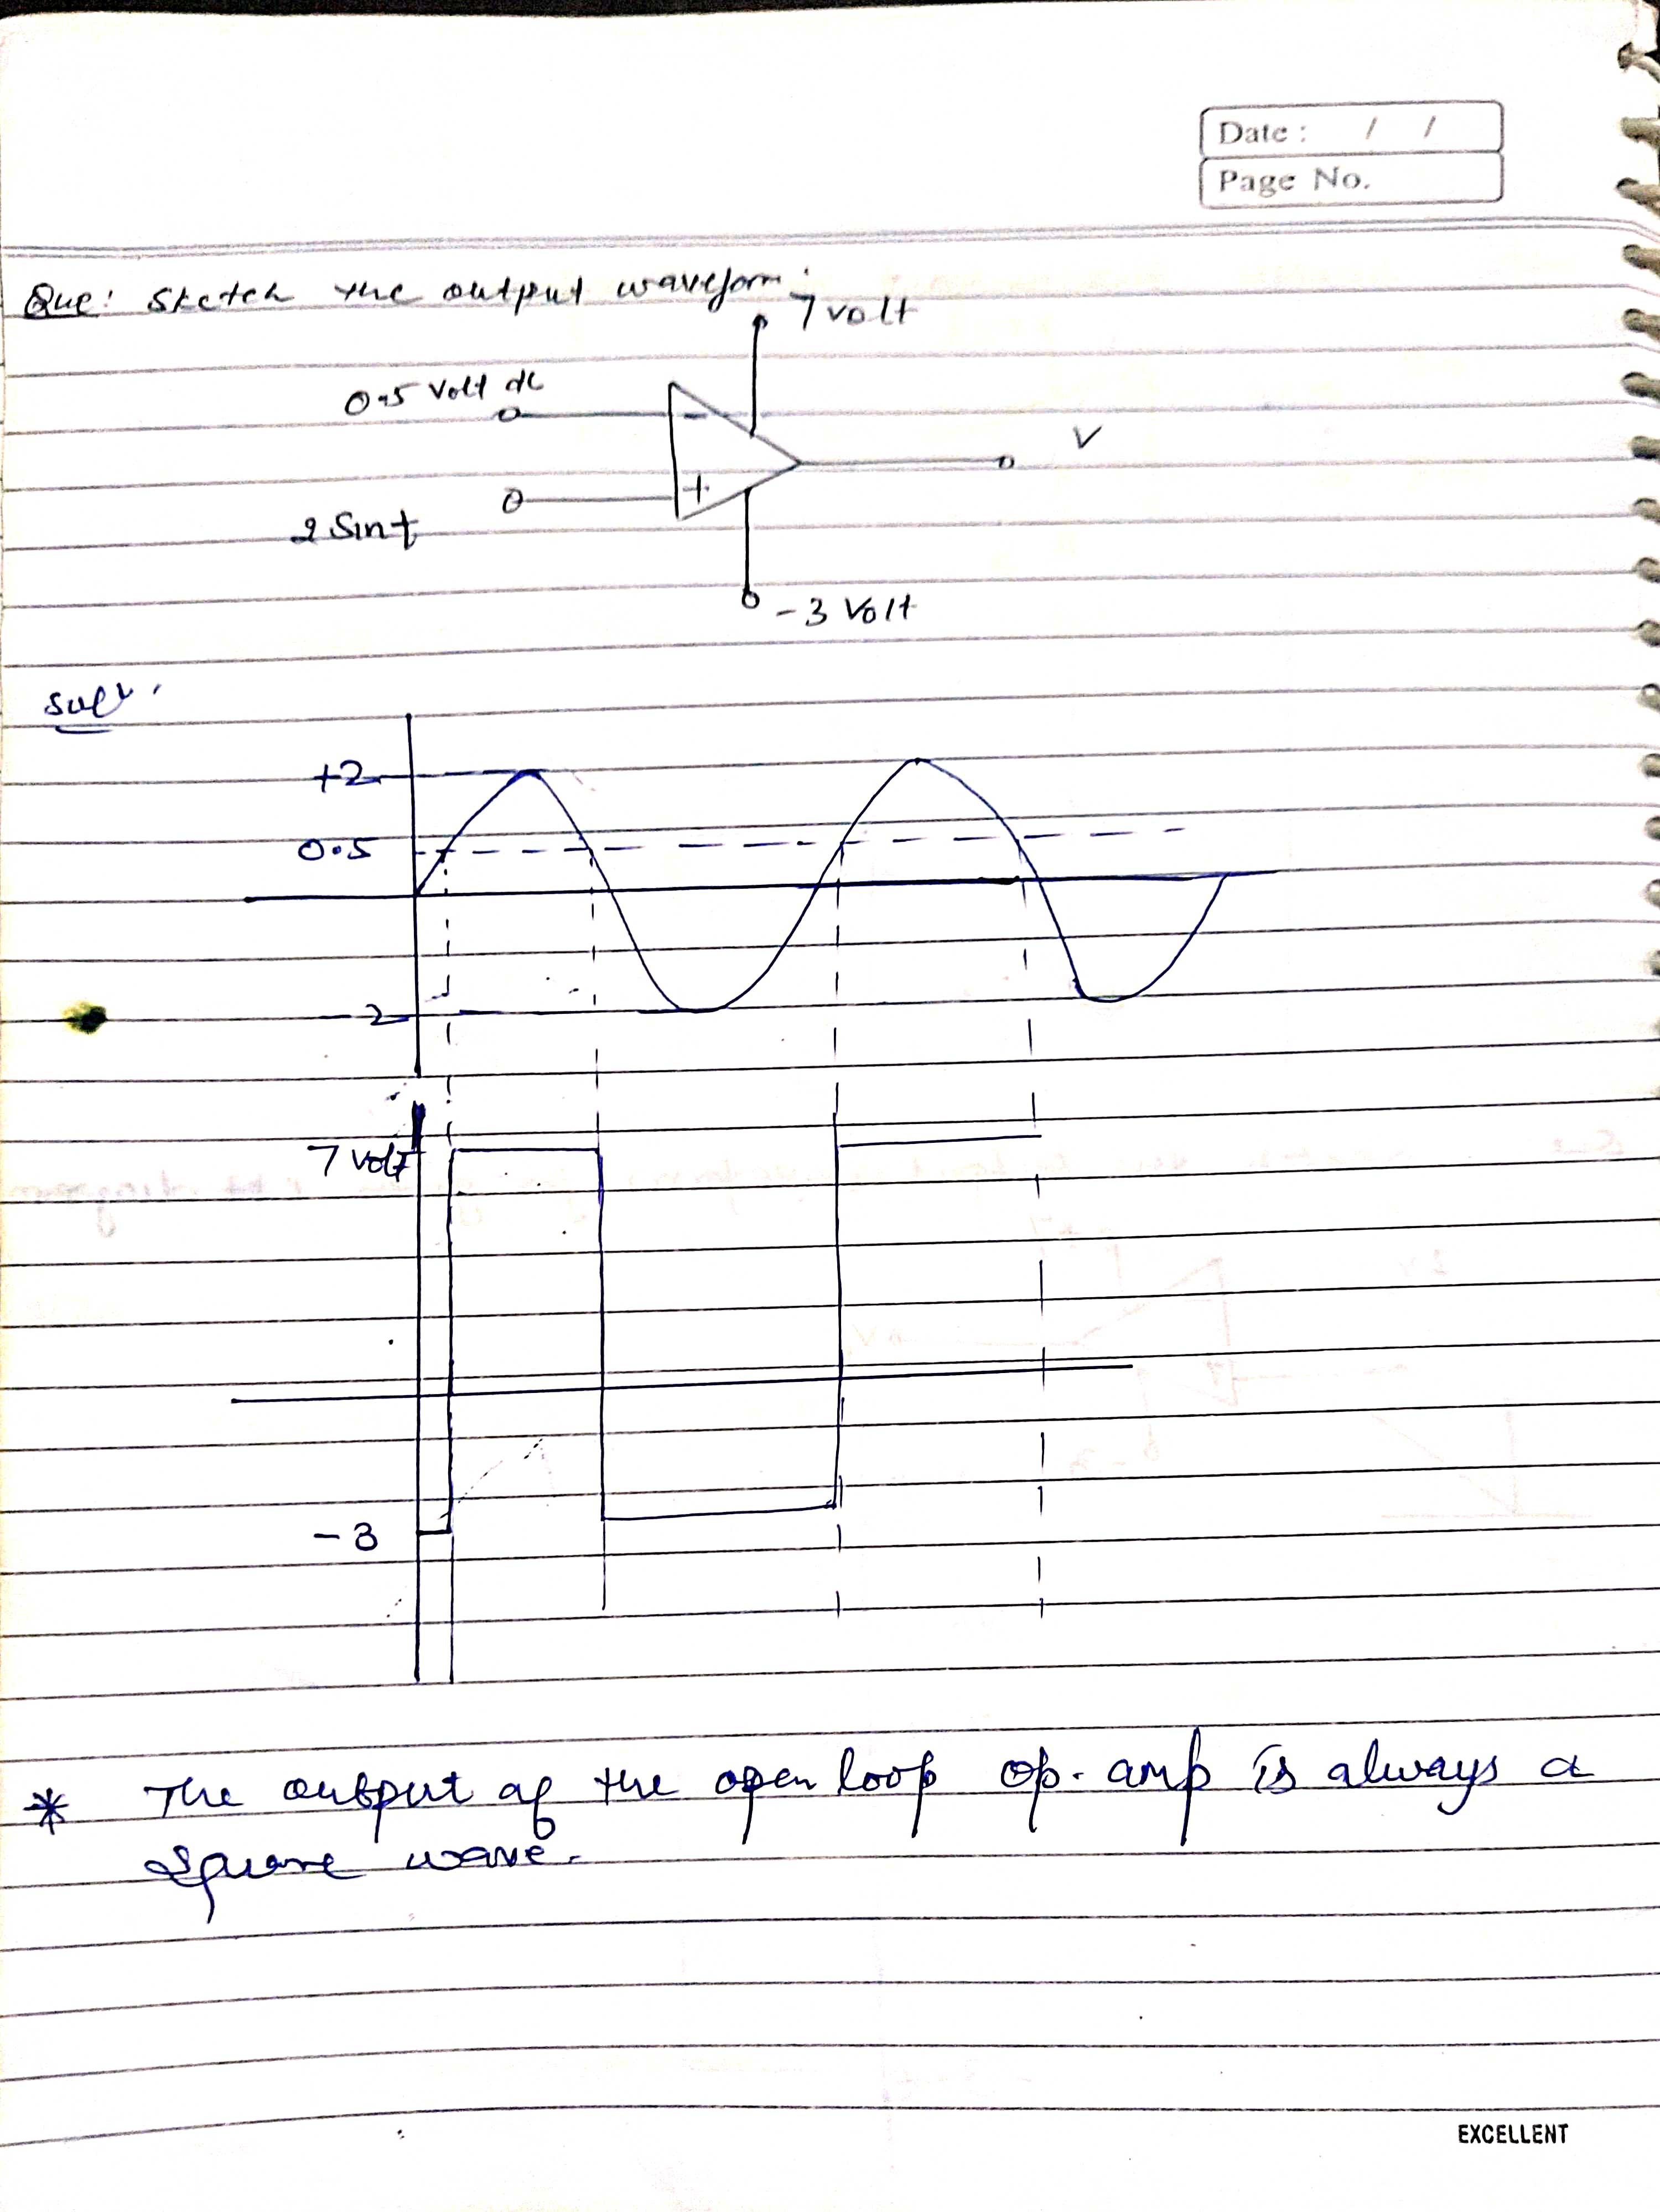 Date : / /
Page No.
Que: Sketch the output waveform:
7 volt
0.5 Volt dc
-
V
+
2 Sin t
-3 Volt
Sol
+2
0.5
-2
7 volt
-3
* The output of the open loop op-amp is always a
square wave.
EXCELLENT